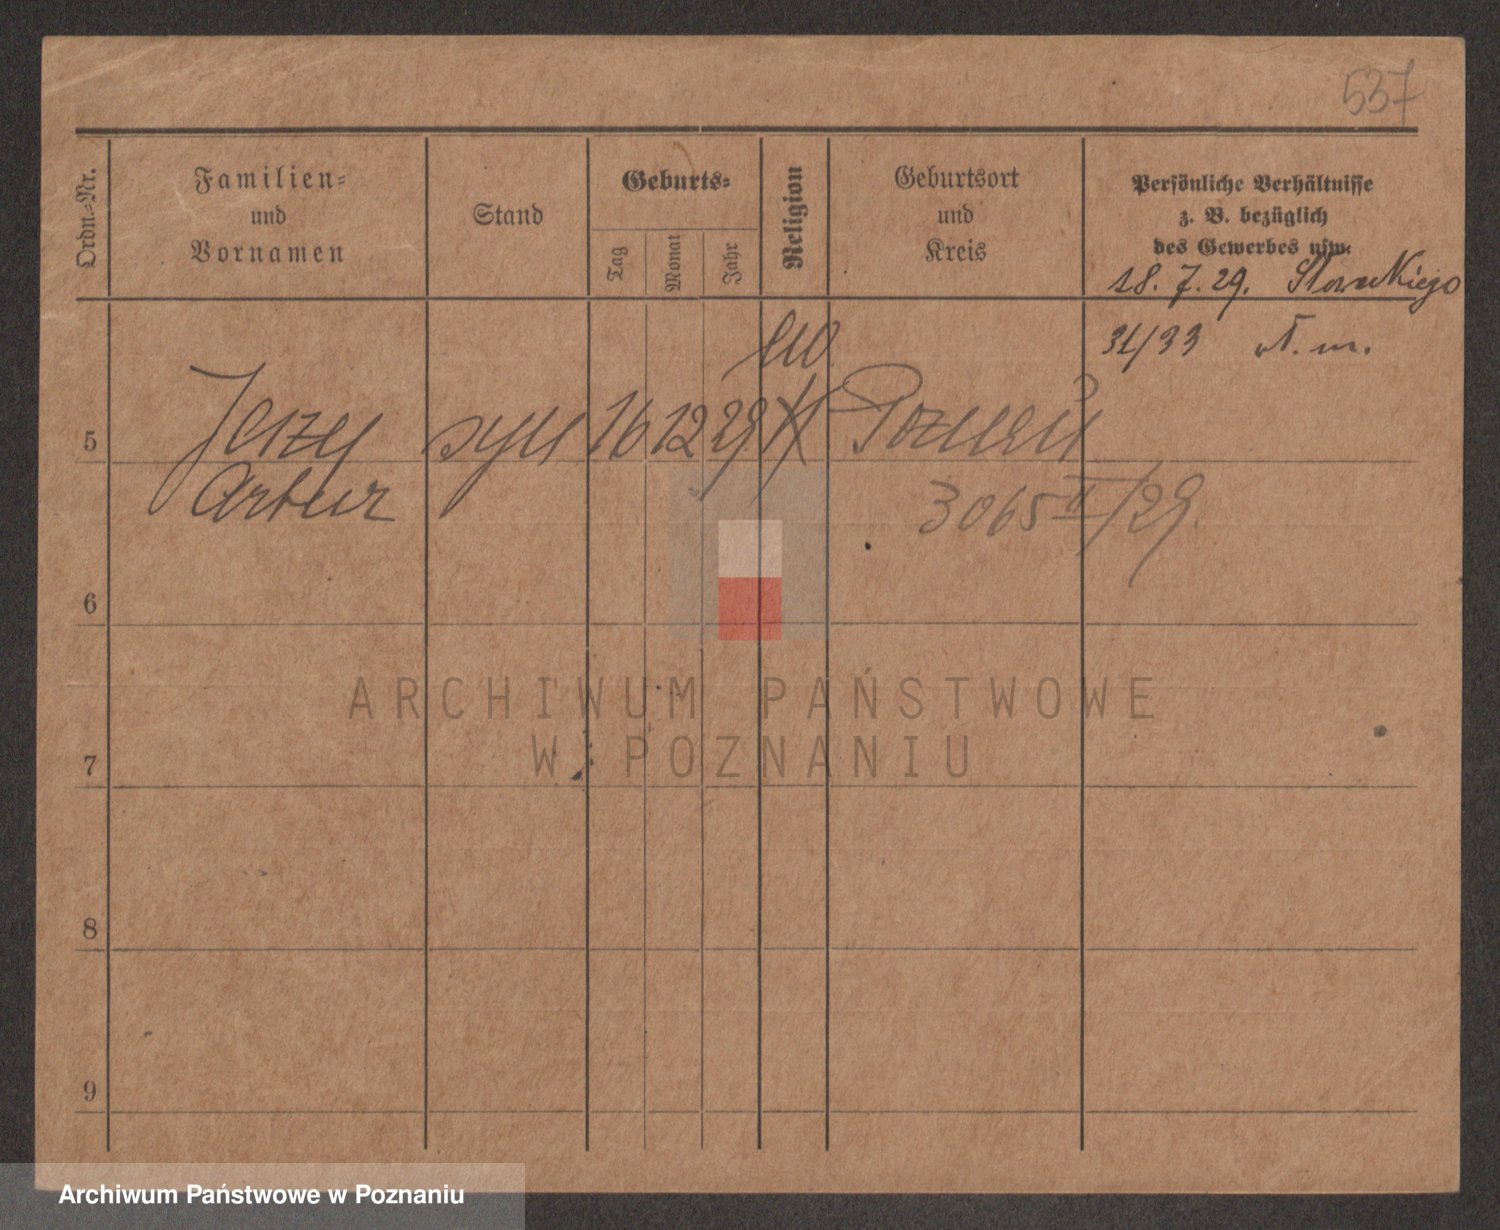 537
Ordn.-Nr.
Familien-
und
Vornamen
Stand
Geburts-
Tag
Monat
Jahr
Religion
Geburtsort
und
Kreis
Persönliche Verhältnisse
z. B. bezüglich
des Gewerbes usw.
18. 7. 29. Słowackiego
31/33
5 Jerzy syn 16 12 29 Poznań
Artur
3065 II/29.
6
ARCHIWUM PAŃSTWOWE
W POZNANIU
7
8
9
Archiwum Państwowe w Poznaniu